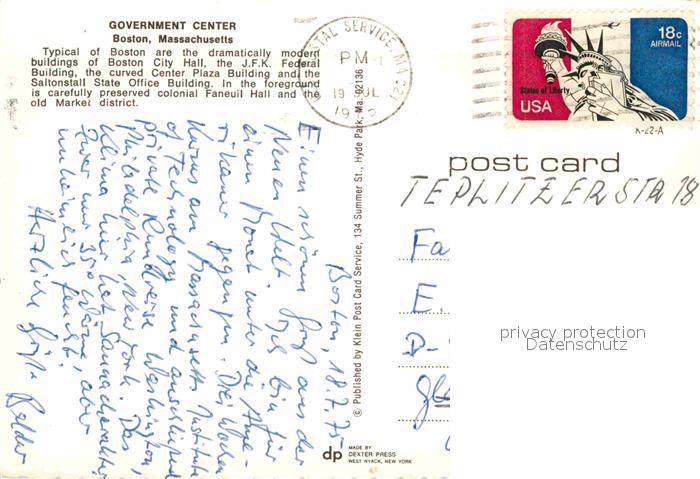 GOVERNMENT CENTER
Boston, Massachusetts
Typical of Boston are the dramatically modern
buildings of Boston City Hall, the J.F.K. Federal
Building, the curved Center Plaza Building and the
Saltonstall State Office Building. In the foreground
is carefully preserved colonial Faneuil Hall and the
old Market district.
POSTAL SERVICE, MA 021
PM
19 JUL
19
18c
AIRMAIL
Statue of Liberty
USA
K-22-A
post card
TEPLITZERSTR 18
Boston, 18.7.75
Einen schönen Gruß aus der
Neuen Welt. Ich bin für
einen Monat unter die Ame-
rikaner gegangen. Drei Wochen
Kurs am Massachusetts Institute
of Technology und anschließend
private Rundreise Washington,
Philadelphia, New York. Das
Klima hier hat Saunacharakter
Zwar nur 35° Wärme, aber
unheimlich feucht.
Herzliche Grüße
Fa
E.
D-
privacy protection
Datenschutz
© Published by Klein Post Card Service, 134 Summer St., Hyde Park, Ma. 02136
dp
MADE BY
DEXTER PRESS
WEST NYACK, NEW YORK